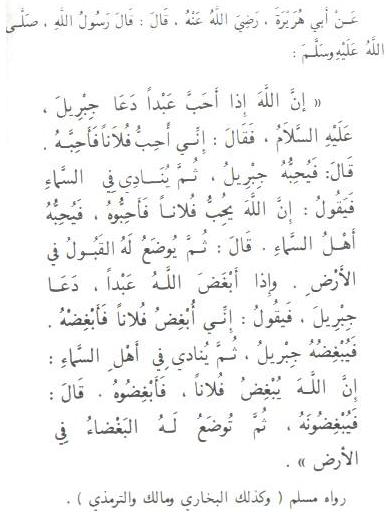 عَـنْ أَبي هُرَيْرَةَ ، رَضِيَ اللهُ عَنْهُ ، قَالَ : قَالَ رَسُولُ اللهِ ، صَلَّـى
اللهُ عَلَيْهِ وسَلَّمَ :
« إنَّ اللهَ إذَا أَحَبَّ عَبْداً دَعَا جِبْرِيلَ ،
عَلَيْهِ السَّلامُ ، فَقَالَ : إنَّـي أُحِبُّ فُلاَناً فَأَحِبَّـهُ .
قَالَ: فَيُحِبُّهُ جِبْرِيلُ ، ثُـمَّ يُنَـادِي فِي السَّماءِ
فَيَقُولُ : إنَّ اللهَ يُحِبُّ فُلانـاً فَأَحِبُّوهُ ، فَيُحِبُّهُ
أَهْـلُ السَّماءِ . قَالَ : ثُـمَّ يُوضَعُ لَهُ القَبُـولُ في
الأَرْضِ . وإذَا أَبْغَضَ اللـهُ عَبْداً ، دَعَـا
جِبْرِيلَ ، فَيَقُولُ : إنَّـي أُبْغِضُ فُلاناً فَأَبْغِضْهُ .
فَيُبْغِضُهُ جِبْرِيلُ ، ثُـمَّ يُنَادي فِي أَهْلِ السَّماءِ :
إنَّ اللـهَ يُبْغِضُ فُلاناً ، فَأَبْغِضُوهُ . قَالَ :
فَيُبْغِضُونَهُ ، ثُمَّ تُوضَعُ لَـهُ البَغْضاءُ فِي
الأرضِ » .
رواه مسلم ( وكذلك البخاري ومالك والترمذي ) .